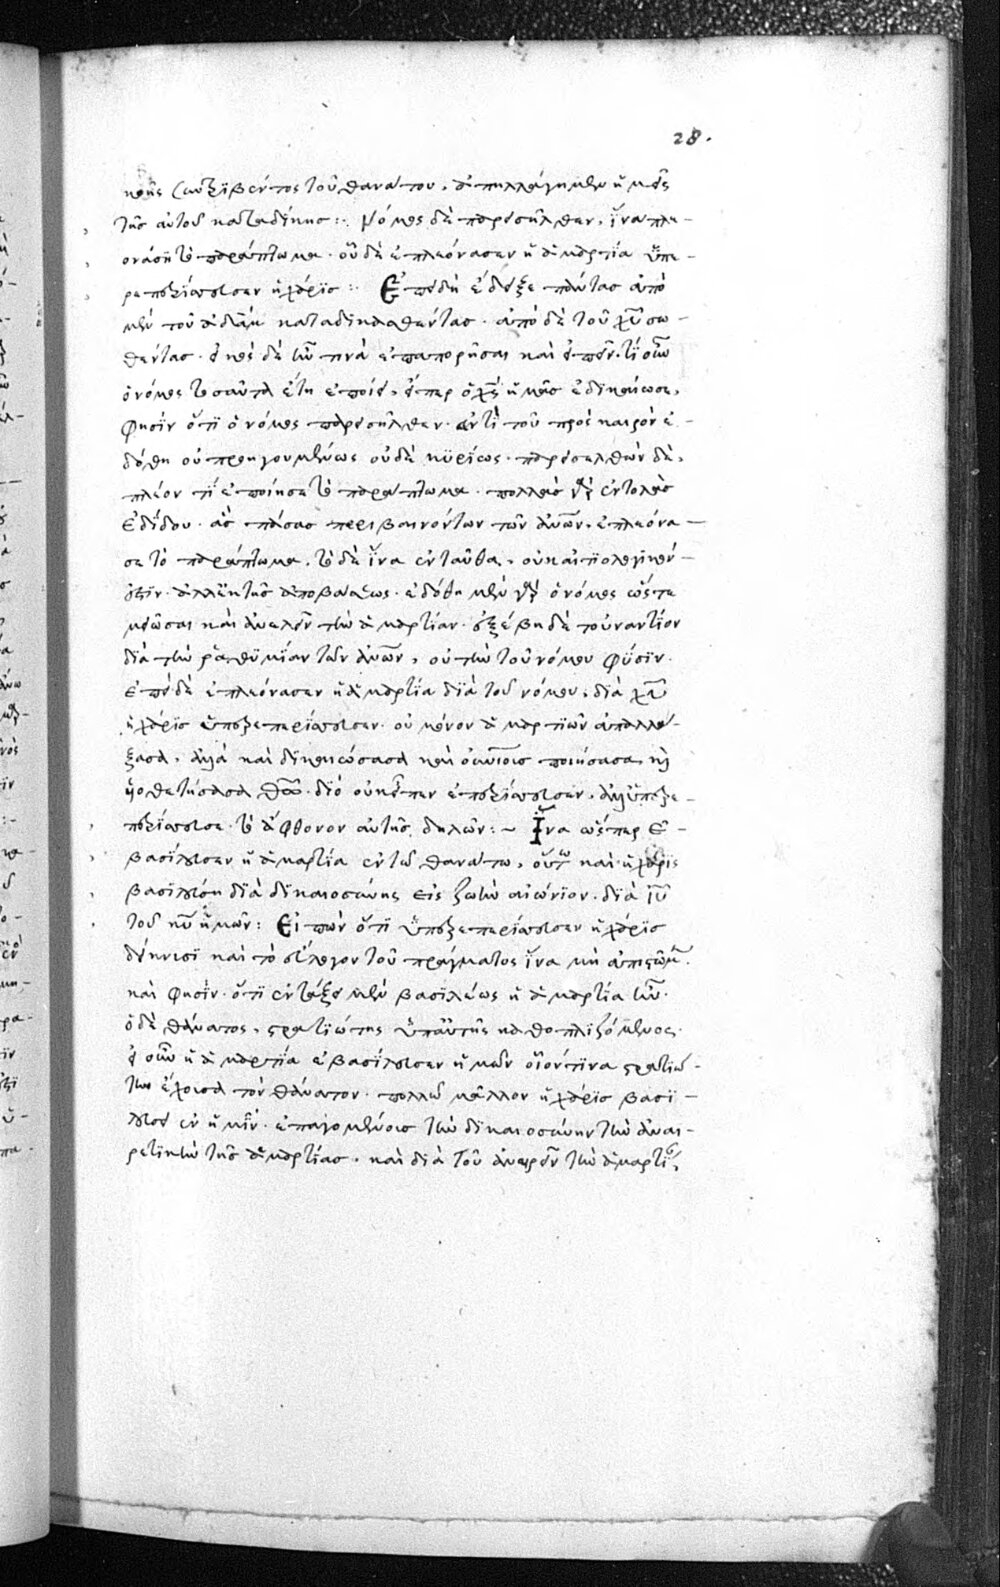 28.
κῆς συντριβέντος τοῦ θανάτου, ἀπηλλάγημεν ἡμεῖς
τῆς αὐτοῦ καταδίκης :· Νόμος δὲ παρεισῆλθεν, ἵνα πλε-
ονάσῃ τὸ παράπτωμα. οὗ δὲ ἐπλεόνασεν ἡ ἁμαρτία ὑπε-
ρεπερίσσευσεν ἡ χάρις :· Ἐπειδὴ ἔδειξε πάντας ἀπὸ
μὲν τοῦ ἀδὰμ κατακριθέντας. ἀπὸ δὲ τοῦ χυ σω-
θέντας. εἰκὸς δὲ ἦν τινὰ ἐπαπορῆσαι καὶ εἰπεῖν. τί οὖν
ὁ νόμος τοσαῦτα ἔτη ἐποίει, εἴπερ ὁ χς ἡμᾶς ἐδικαίωσε,
φησὶν ὅτι ὁ νόμος παρεισῆλθεν. ἀντὶ τοῦ πρὸς καιρὸν ἐ-
δόθη οὐ προηγουμένως οὐδὲ κυρίως. παρεισελθὼν δὲ,
πλέον τι ἐποίησε τὸ παράπτωμα. πολλὰς γὰρ ἐντολὰς
ἐδίδου. ἃς πάσας παραβαινόντων τῶν ἀνων, ἐπλεόνα-
σε τὸ παράπτωμα. τὸ δὲ ἵνα ἐνταῦθα, οὐκ αἰτιολογικόν
ἐστιν. ἀλλ' ἐκ τῆς ἀποβάσεως. ἐδόθη μὲν γὰρ ὁ νόμος ὥστε
μειῶσαι καὶ ἀνελεῖν τὴν ἁμαρτίαν. ἐξέβη δὲ τοὐναντίον
διὰ τὴν ῥαθυμίαν τῶν ἀνων, οὐ τὴν τοῦ νόμου φύσιν.
ἐπεὶ δὲ ἐπλεόνασεν ἡ ἁμαρτία διὰ τοῦ νόμου, διὰ χυ
ἡ χάρις ὑπερεπερίσσευσεν. οὐ μόνον ἁμαρτιῶν ἀπαλλά-
ξασα, ἀλλὰ καὶ δικαιώσασα καὶ οὐνίους ποιήσασα, κὶ
υἱοθετήσασα θω. διὸ οὐκ εἶπεν ἐπερίσσευσεν, ἀλλ' ὑπερε-
περίσσευσε. τὸ ἄφθονον αὐτῆς δηλῶν :~ Ἵνα ὥσπερ ἐ-
βασίλευσεν ἡ ἁμαρτία ἐν τῷ θανάτῳ, οὕτω καὶ ἡ χάρις
βασιλεύσῃ διὰ δικαιοσύνης εἰς ζωὴν αἰώνιον. διὰ ιυ
τοῦ κυ ἡμῶν : Εἰπὼν ὅτι ὑπερεπερίσσευσεν ἡ χάρις
δείκνυσι καὶ τὸ εὔλογον τοῦ πράγματος ἵνα μὴ ἀπιστῶμεν.
καὶ φησὶν. ὅτι ἐν τάξει μὲν βασιλέως ἡ ἁμαρτία ἦν.
ὁ δὲ θάνατος, στρατιώτης ὑπ' αὐτῆς καθοπλιζόμενος.
εἰ οὖν ἡ ἁμαρτία ἐβασίλευσεν ἡμῶν οἷόν τινα στρατιώ-
την ἔχουσα τὸν θάνατον. πολλῷ μᾶλλον ἡ χάρις βασι-
λεύσει ἐν ἡμῖν. ἐπαγομένοις τὴν δικαιοσύνην τὴν ἀναι-
ρετικὴν τῆς ἁμαρτίας. καὶ διὰ τοῦ ἀναιρεῖν τὴν ἁμαρτίαν,